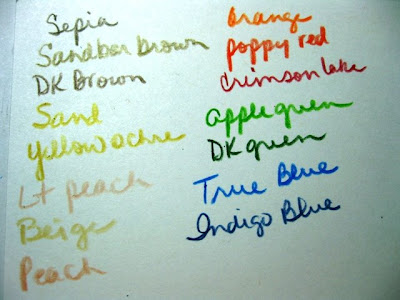 Sepia
Sandbar brown
DK Brown
Sand
Yellow ochre
Lt peach
Beige
Peach
Orange
poppy red
crimson lake
apple green
DK green
True Blue
Indigo Blue